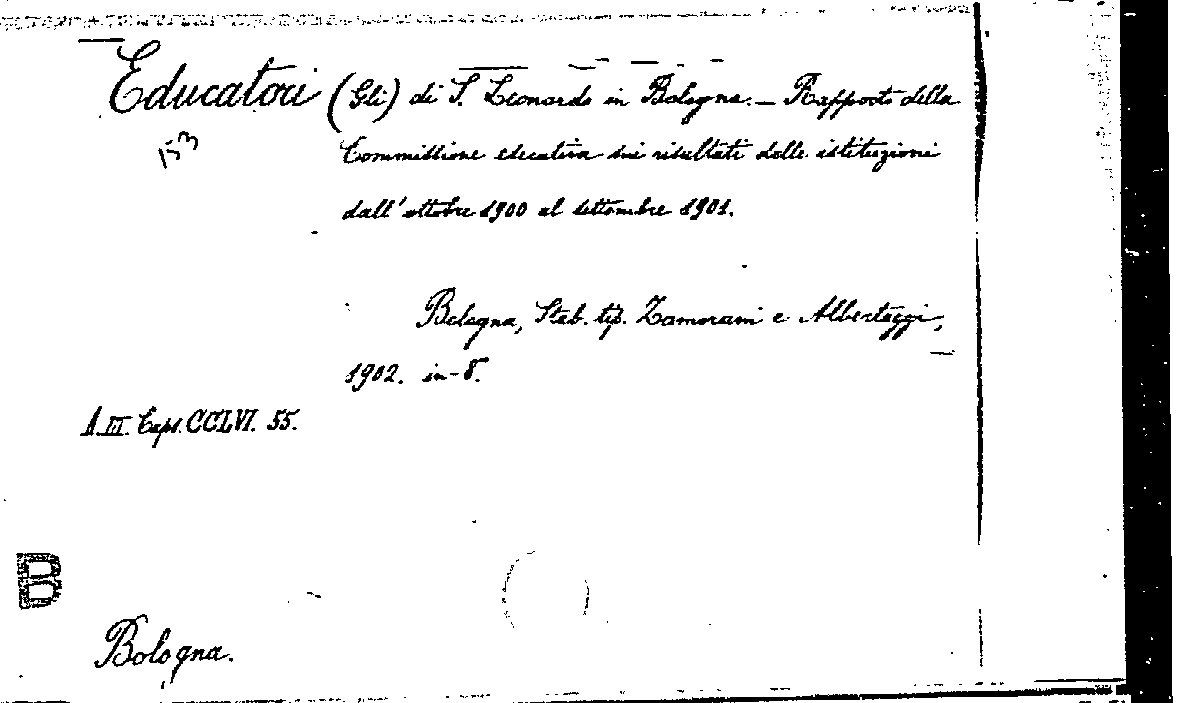 Educatori (Gli) di S. Leonardo in Bologna. — Rapporto della
153
Commissione educativa sui risultati delle istituzioni
dall'ottobre 1900 al settembre 1901.
Bologna, Stab. tip. Zamorani e Albertazzi,
1902. in-8.
A.III. Caps. CCLVI. 55.
B
Bologna.